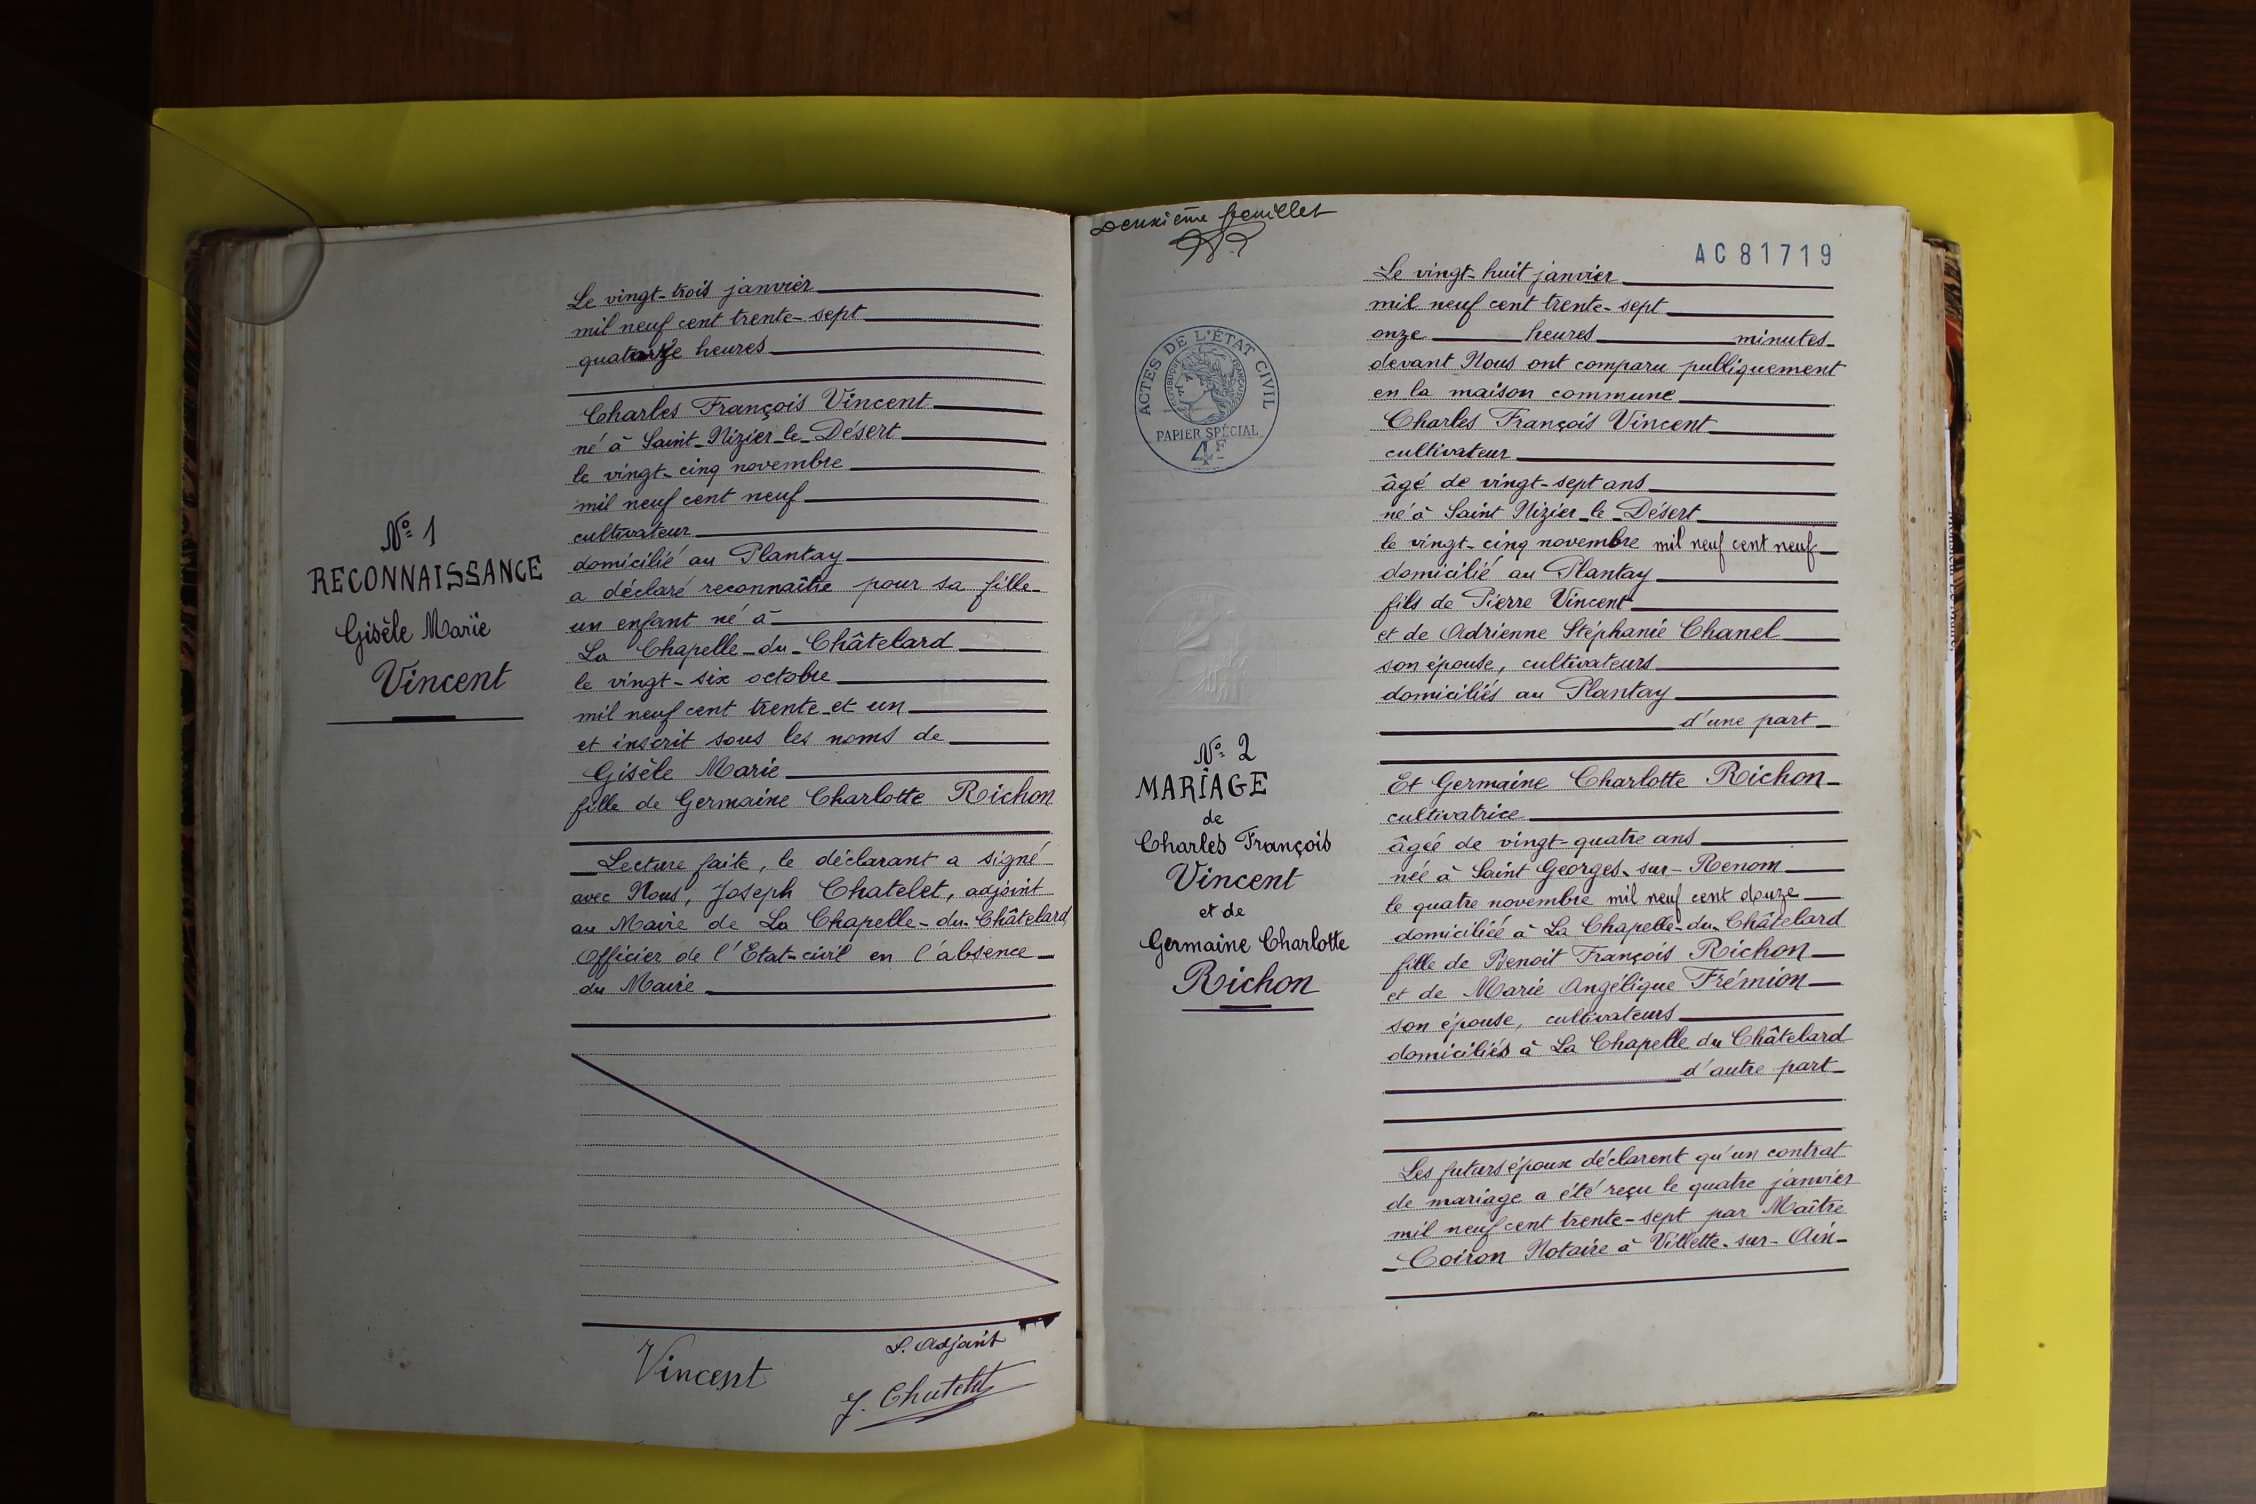 N° 1
RECONNAISSANCE
Gisèle Marie
Vincent
Le vingt-trois janvier
mil neuf cent trente-sept
quatorze heures
Charles François Vincent
né à Saint-Nizier-le-Désert
le vingt-cinq novembre
mil neuf cent neuf
cultivateur
domicilié au Plantay
a déclaré reconnaître pour sa fille
un enfant né à
La Chapelle-du-Châtelard
le vingt-six octobre
mil neuf cent trente et un
et inscrit sous les noms de
Gisèle Marie
fille de Germaine Charlotte Richon
Lecture faite, le déclarant a signé
avec Nous, Joseph Chatelet, adjoint
au Maire de La Chapelle-du-Châtelard
Officier de l'Etat-civil en l'absence
du Maire
Vincent
L. Adjoint
J. Chatelet
Deuxième feuillet
AC 81719
ACTES DE L'ÉTAT CIVIL
RÉPUBLIQUE FRANÇAISE
PAPIER SPÉCIAL
4F
N° 2
MARIAGE
de
Charles François
Vincent
et de
Germaine Charlotte
Richon
Le vingt-huit janvier
mil neuf cent trente-sept
onze heures minutes
devant Nous ont comparu publiquement
en la maison commune
Charles François Vincent
cultivateur
âgé de vingt-sept ans
né à Saint Nizier-le-Désert
le vingt-cinq novembre mil neuf cent neuf
domicilié au Plantay
fils de Pierre Vincent
et de Adrienne Stéphanie Chanel
son épouse, cultivateurs
domiciliés au Plantay
d'une part
Et Germaine Charlotte Richon
cultivatrice
âgée de vingt-quatre ans
née à Saint Georges-sur-Renom
le quatre novembre mil neuf cent douze
domiciliée à La Chapelle-du-Châtelard
fille de Benoit François Richon
et de Marie Angélique Frémion
son épouse, cultivateurs
domiciliés à La Chapelle du Châtelard
d'autre part
Les futurs époux déclarent qu'un contrat
de mariage a été reçu le quatre janvier
mil neuf cent trente-sept par Maître
Coiron Notaire à Villette-sur-Ain